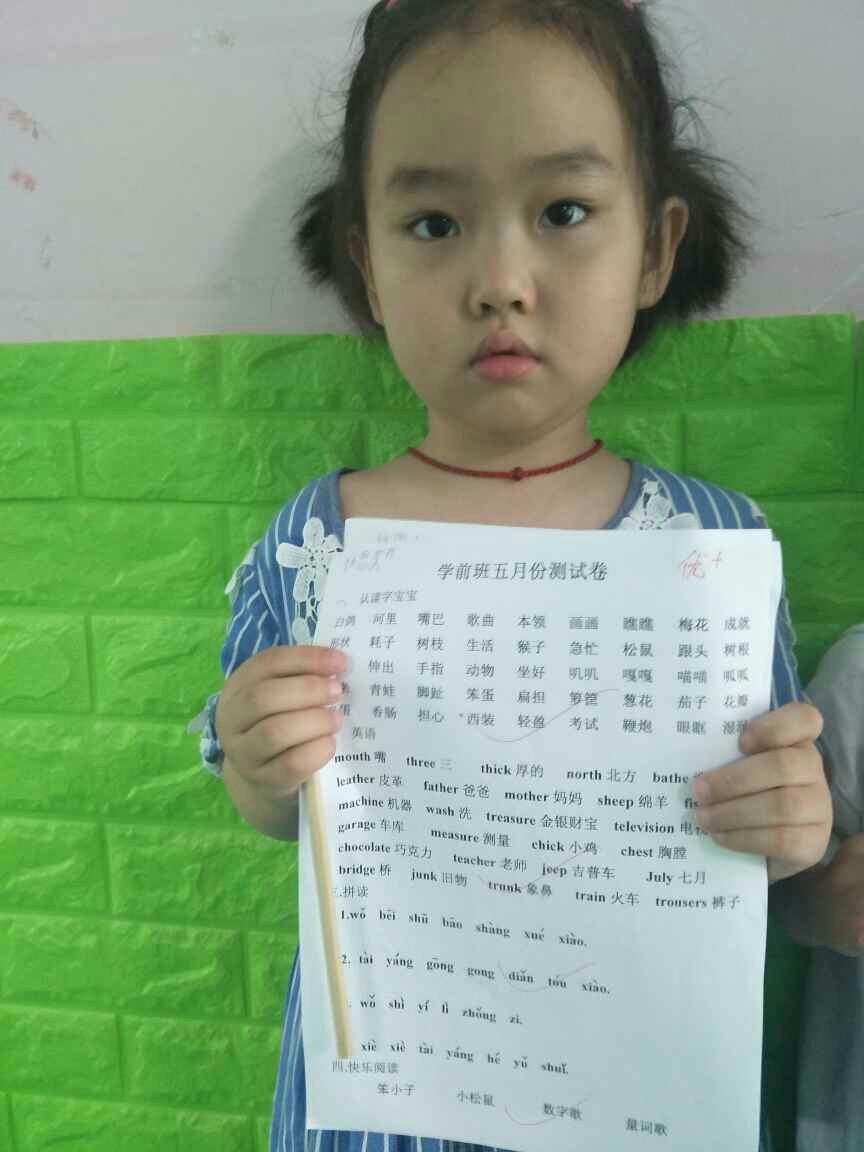 学前班五月份测试卷
优+
一 认读字宝宝
白鸽 河里 嘴巴 歌曲 本领 画画 瞧瞧 梅花 成就
形状 耗子 树枝 生活 猴子 急忙 松鼠 跟头 树根
伸出 手指 动物 坐好 叽叽 嘎嘎 喵喵 呱呱
青蛙 脚趾 笨蛋 扁担 箩筐 葱花 茄子 花瓣
蛋 香肠 担心 西装 轻盈 考试 鞭炮 眼眶
英语
mouth 嘴 three 三 thick 厚的 north 北方 bathe
leather 皮革 father 爸爸 mother 妈妈 sheep 绵羊
machine 机器 wash 洗 treasure 金银财宝 television 电视
garage 车库 measure 测量 chick 小鸡 chest 胸膛
chocolate 巧克力 teacher 老师 jeep 吉普车 July 七月
bridge 桥 junk 旧物 trunk 象鼻 train 火车 trousers 裤子
三.拼读
1.wǒ bēi shū bāo shàng xué xiào.
2. tài yáng gōng gong diǎn tóu xiào.
wǒ shì yí lì zhǒng zi.
xiè xiè tài yáng hé yǔ shuǐ.
四.快乐阅读
笨小子 小松鼠 数字歌 量词歌